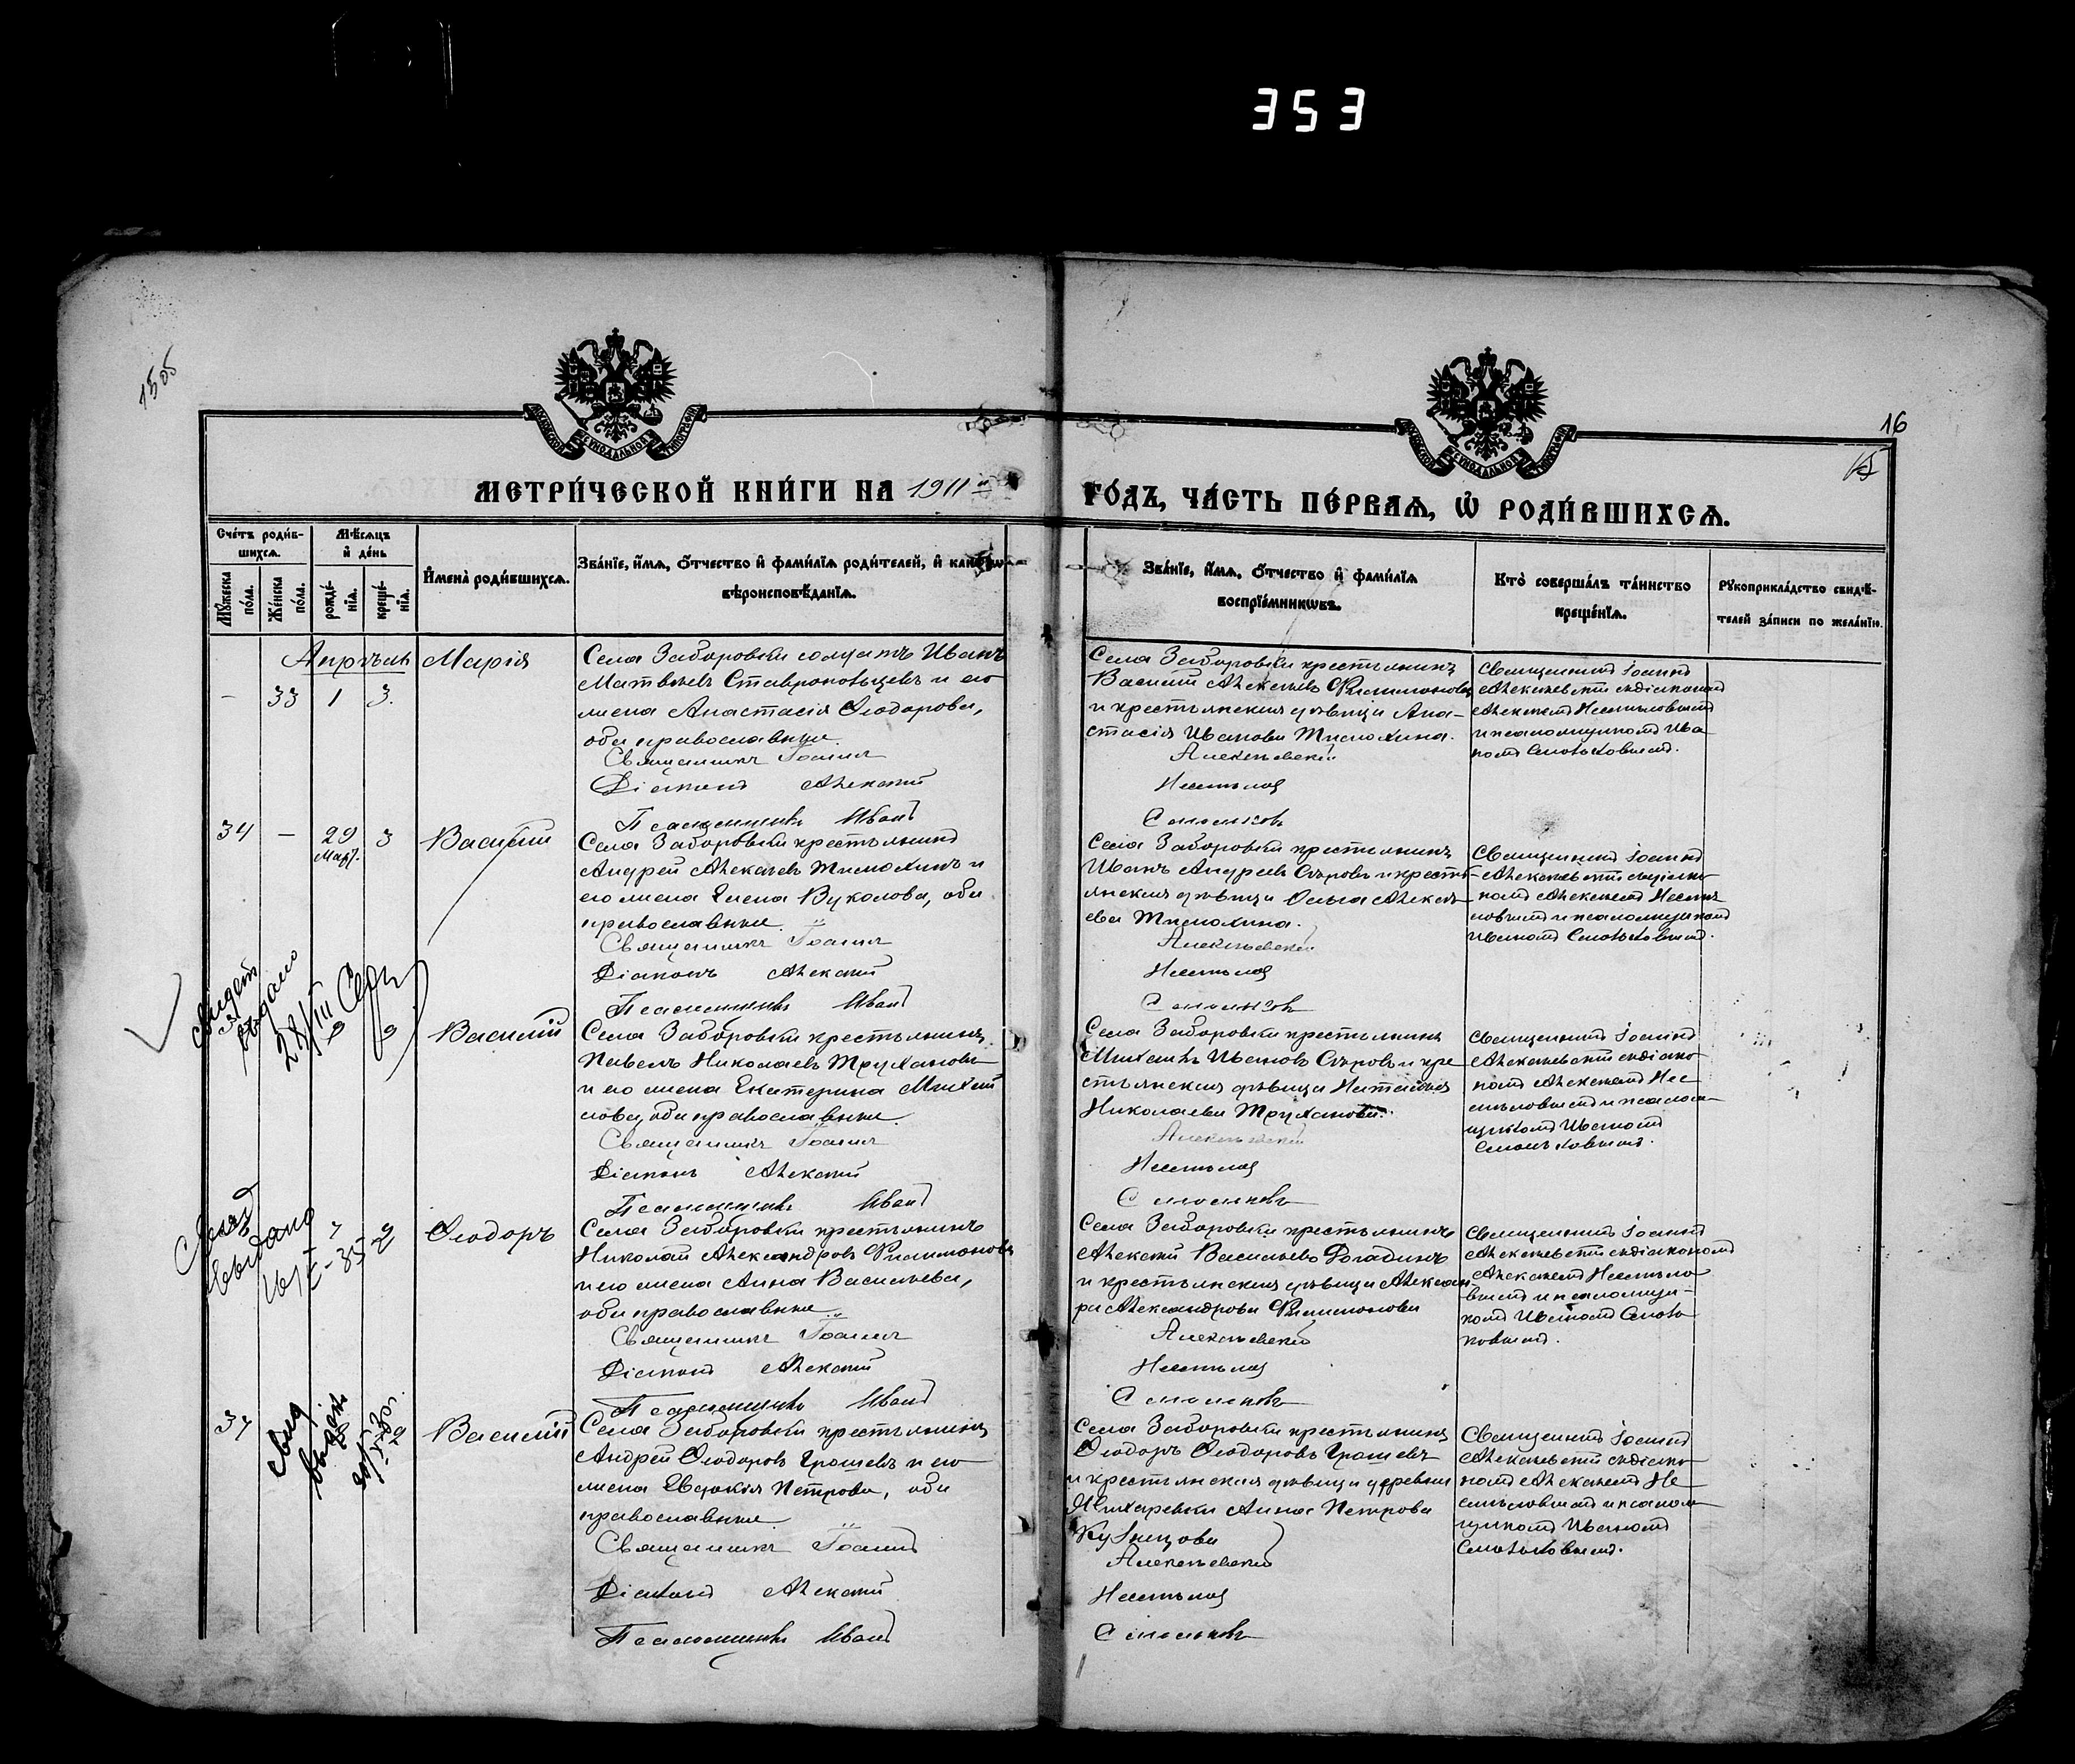 353
1505
16
15
МОСКОВСКОЙ СѴНОДАЛЬНОЙ ТИПОГРАФІИ
МОСКОВСКОЙ СѴНОДАЛЬНОЙ ТИПОГРАФІИ
МЕТРИ́ЧЕСКОЙ КНИ́ГИ НА 1911й
ГО́ДЪ, ЧА́СТЬ ПЕ́РВАѦ, Ѽ РОДИ́ВШИХСѦ.
Сче́тъ роди́в-
шихсѧ.
Мѣ́сѧцъ
и҆ де́нь
Мꙋ́жеска по́ла.
Же́нска по́ла.
рожде́-
нїѧ.
креще́-
нїѧ.
И҆мена̀ роди́вшихсѧ.
Зва́нїе, и҆́мѧ, ѻ҆́тчество и҆ фами́лїѧ роди́телей, и҆ како́гѡ
вѣроисповѣ́данїѧ.
Зва́нїе, и҆́мѧ, ѻ҆́тчество и҆ фами́лїѧ
воспрїе́мникѡвъ.
Кто̀ соверша́лъ та́инство
креще́нїѧ.
Рꙋкоприкла́дство свидѣ́-
телей за́писи по жела́нїю.
Апрѣль
- 33 1 3.
Марія
Села Заборовки солдатъ Иванъ
Матвѣевъ Ставропольцевъ и его
жена Анастасія Ѳеодорова,
оба православные.
Священникъ Іоаннъ
Діаконъ Алексій
Псаломщикъ Иванъ
Села Заборовки крестьянинъ
Василій Алексѣевъ Филимоновъ
и крестьянская дѣвица Ана-
стасія Иванова Тимохина.
Алексѣевскій
Несмѣловъ
Смольковъ
Священникъ Іоаннъ
Алексѣевскій съ діакономъ
Алексѣемъ Несмѣловымъ
и псаломщикомъ Ива-
номъ Смольковымъ.
34 - 29 3
Март.
Василій
Села Заборовки крестьянинъ
Андрей Алексѣевъ Тимохинъ и
его жена Елена Вуколова, оба
православные.
Священникъ Іоаннъ
Діаконъ Алексій
Псаломщикъ Иванъ
Села Заборовки крестьянинъ
Иванъ Андреевъ Сѣровъ и кресть-
янская дѣвица Ольга Алексѣ-
ева Тимохина.
Алексѣевскій
Несмѣловъ
Смольковъ
Священникъ Іоаннъ
Алексѣевскій съ діако-
номъ Алексѣемъ Несмѣ-
ловымъ и псаломщикомъ
Иваномъ Смольковымъ.
выдано
28/III
Василій
Села Заборовки крестьянинъ
Павелъ Николаевъ Трухановъ
и его жена Екатерина Михай
лова, оба православные.
Священникъ Іоаннъ
Діаконъ Алексій
Псаломщикъ Иванъ
Села Заборовки крестьянинъ
Михаилъ Ивановъ Сѣровъ и кре-
стьянская дѣвица Наталія
Николаева Труханова.
Алексѣевскій
Несмѣловъ
Смольковъ
Священникъ Іоаннъ
Алексѣевскій съ діако-
номъ Алексѣемъ Нес-
мѣловымъ и псалом-
щикомъ Иваномъ
Смольковымъ.
выдано
Ѳеодоръ
Села Заборовки крестьянинъ
Николай Александровъ Филимоновъ
и его жена Анна Васильева,
оба православные.
Священникъ Іоаннъ
Діаконъ Алексій
Псаломщикъ Иванъ
Села Заборовки крестьянинъ
Алексій Васильевъ Догадинъ
и крестьянская дѣвица Алексан-
ра Александрова Филимонова
Алексѣевскій
Несмѣловъ
Смольковъ
Священникъ Іоаннъ
Алексѣевскій съ діакономъ
Алексѣемъ Несмѣло-
вымъ и псаломщи-
комъ Иваномъ Смоль-
ковымъ.
37
Василій
Села Заборовки крестьянинъ
Андрей Ѳеодоровъ Грошевъ и его
жена Евдокія Петрова, оба
православные.
Священникъ Іоаннъ
Діаконъ Алексій
Псаломщикъ Иванъ
Села Заборовки крестьянинъ
Ѳеодоръ Ѳеодоровъ Грошевъ
и крестьянская дѣвица деревни
Анна Петрова
Кузнецова
Алексѣевскій
Несмѣловъ
Смольковъ
Священникъ Іоаннъ
Алексѣевскій съ діако-
номъ Алексѣемъ Не-
смѣловымъ и псалом-
щикомъ Иваномъ
Смольковымъ.